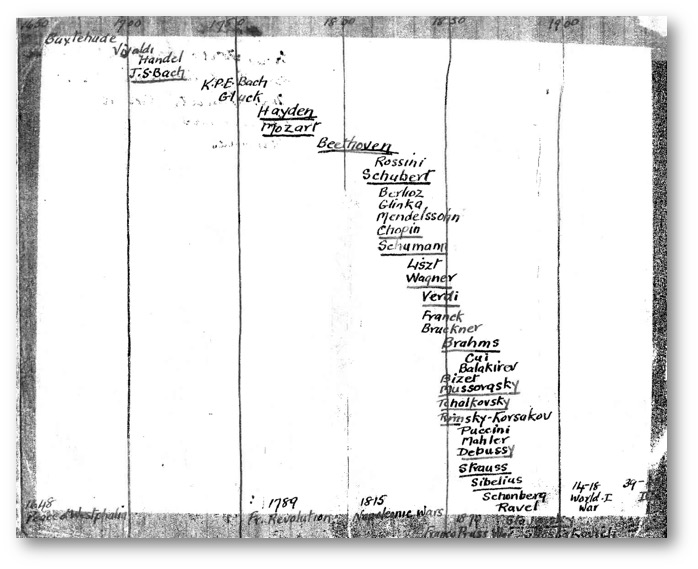 1650 1700 1750 1800 1850 1900
Buxtehude
Vivaldi
Handel
J.S.Bach
K.P.E. Bach
Gluck
Hayden
Mozart
Beethoven
Rossini
Schubert
Berlioz
Glinka
Mendelssohn
Chopin
Schumann
Liszt
Wagner
Verdi
Franck
Bruckner
Brahms
Cui
Balakirev
Bizet
Mussorgsky
Tchaikovsky
Rimsky-Korsakov
Puccini
Mahler
Debussy
Strauss
Sibelius
Schonberg
Ravel
1648
Peace of Westphalia
1789
Fr. Revolution
1815
Napoleonic Wars
1870
Franco Pruss War
Stravinsky
Shostakovich
14-18
World-I
War
39-
II